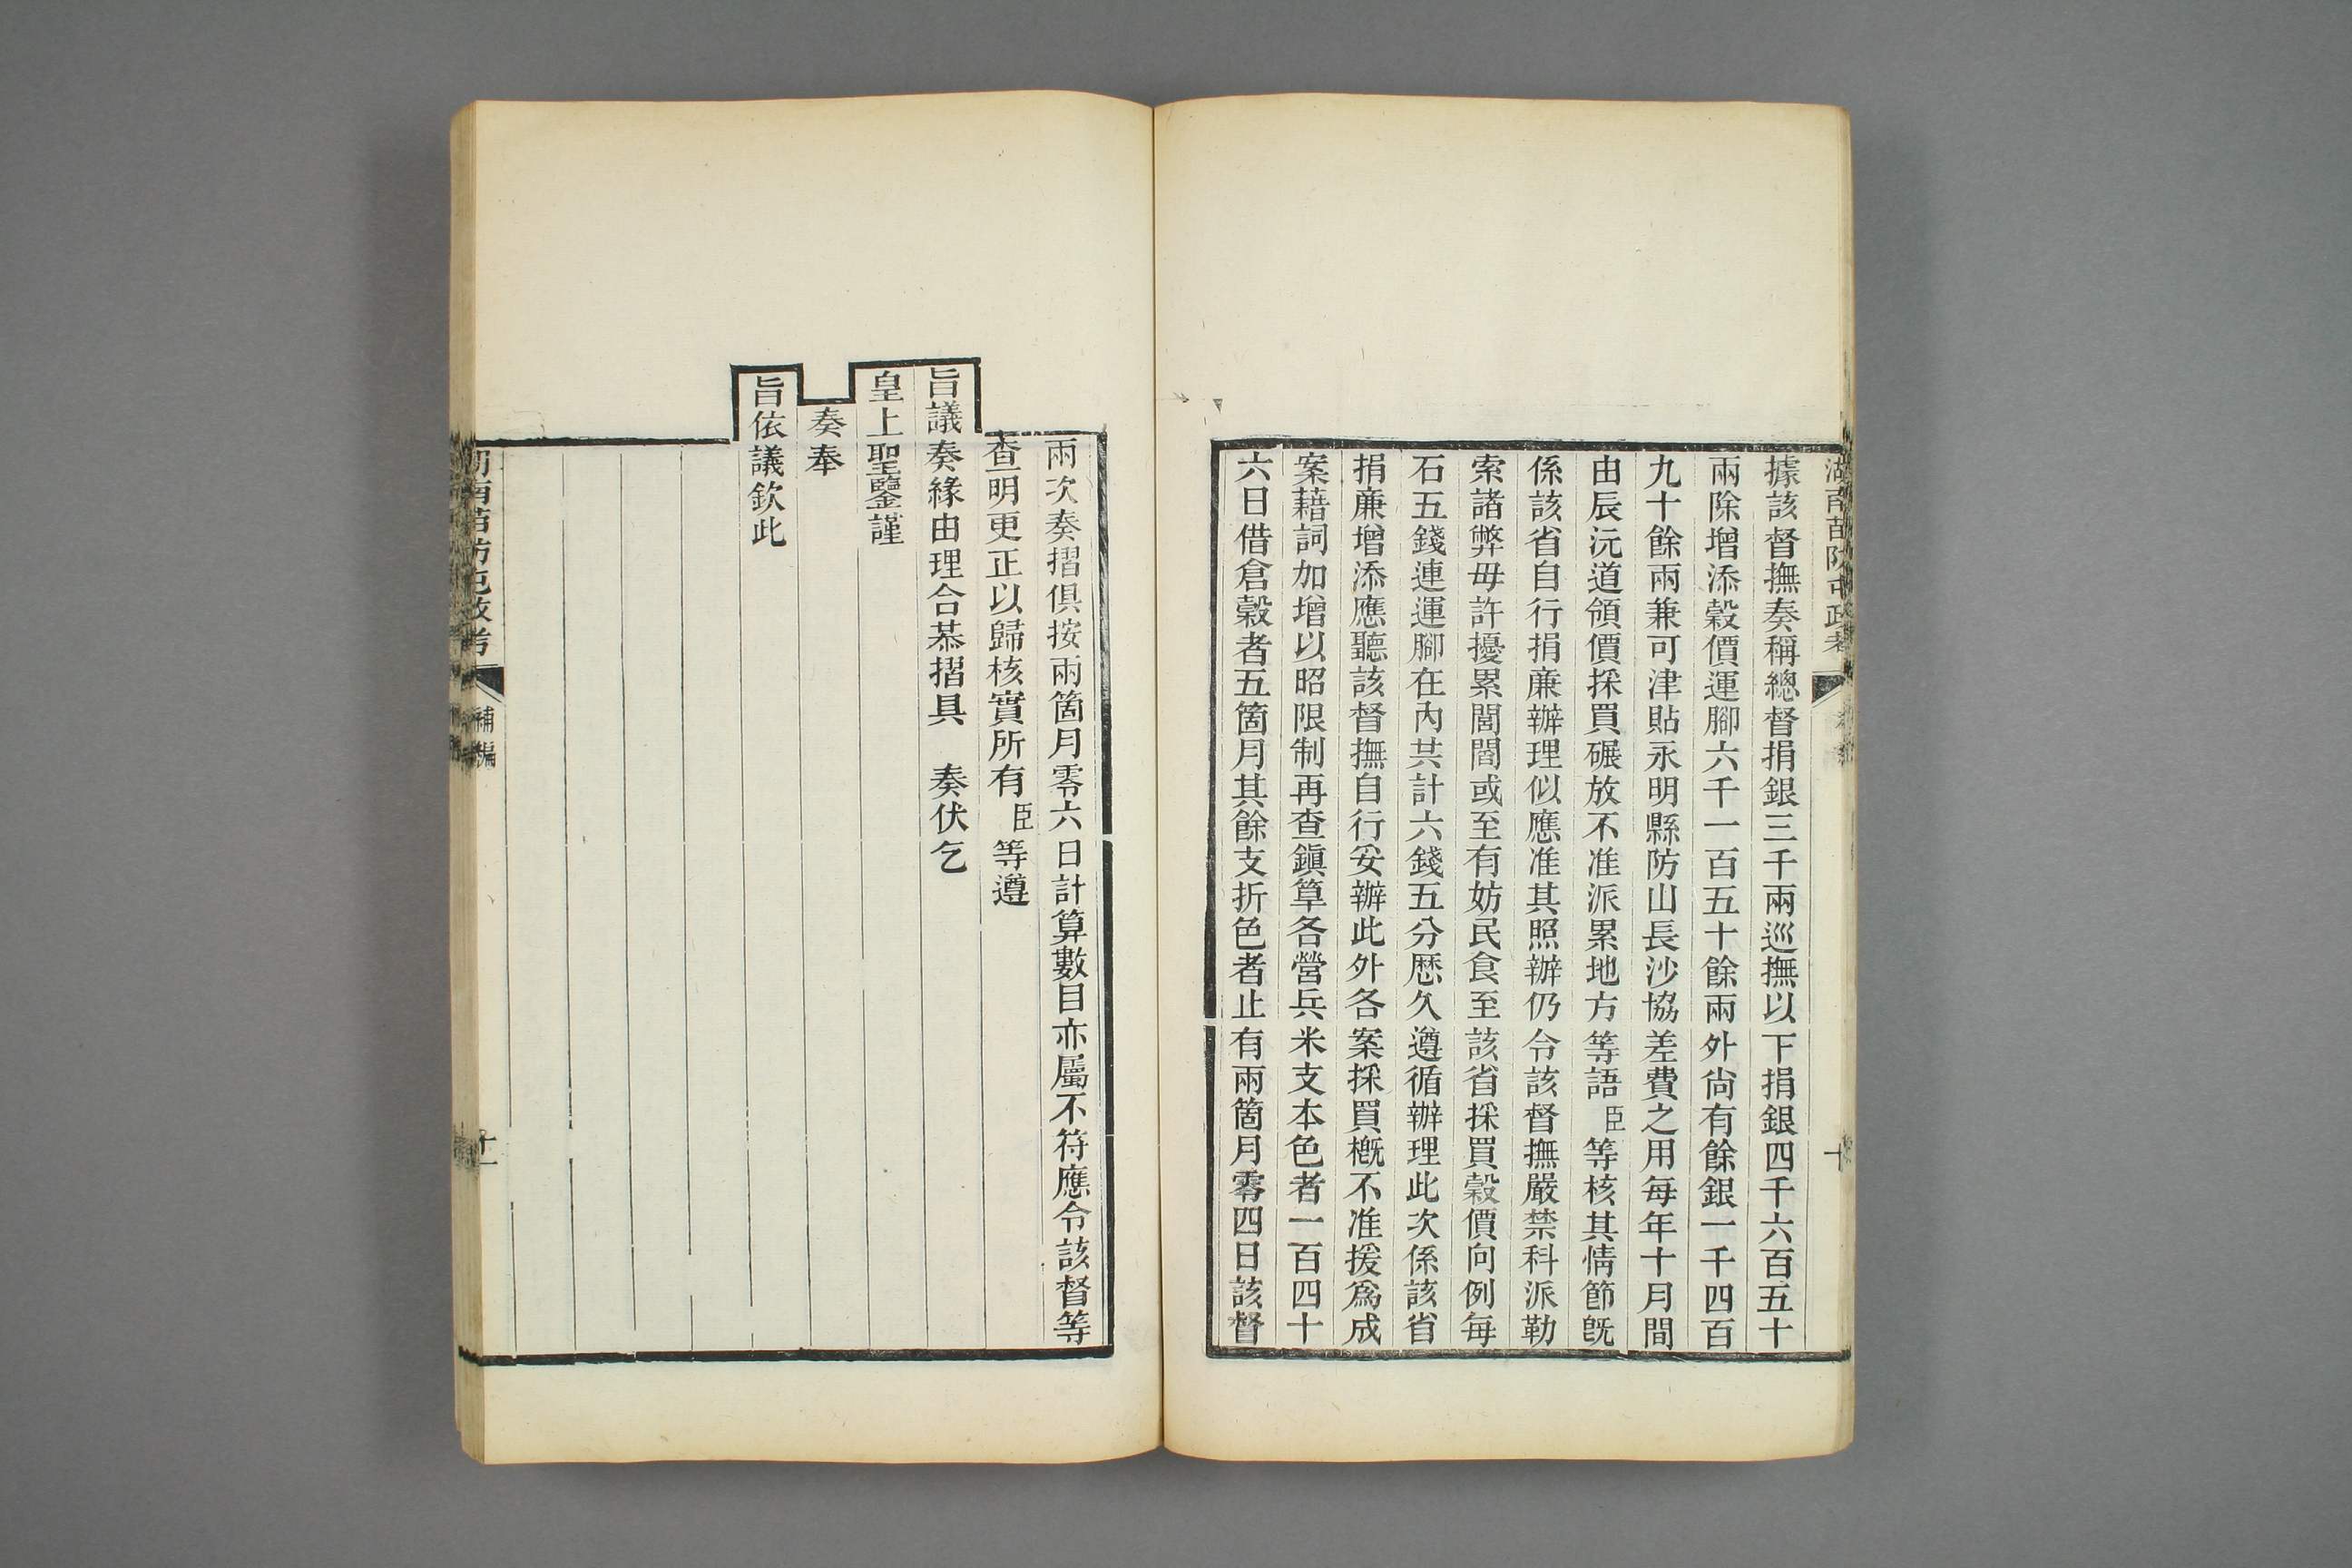 湖南苗防屯政考
十
據該督撫奏稱總督捐銀三千兩巡撫以下捐銀四千六百五十
兩除增添穀價運腳六千一百五十餘兩外尙有餘銀一千四百
九十餘兩兼可津貼永明縣防山長沙協差費之用每年十月間
由辰沅道領價採買碾放不准派累地方等語臣等核其情節旣
係該省自行捐廉辦理似應准其照辦仍令該督撫嚴禁科派勒
索諸弊毋許擾累閭閻或至有妨民食至該省採買穀價向例每
石五錢連運腳在內共計六錢五分歷久遵循辦理此次係該省
捐廉增添應聽該督撫自行妥辦此外各案採買槪不准援爲成
案藉詞加增以昭限制再查鎭筸各營兵米支本色者一百四十
六日借倉穀者五箇月其餘支折色者止有兩箇月零四日該督
兩次奏摺俱按兩箇月零六日計算數目亦屬不符應令該督等
查明更正以歸核實所有臣等遵
旨議奏緣由理合恭摺具　奏伏乞
皇上聖鑒謹
奏奉
旨依議欽此
湖南苗防屯政考
補編
十一